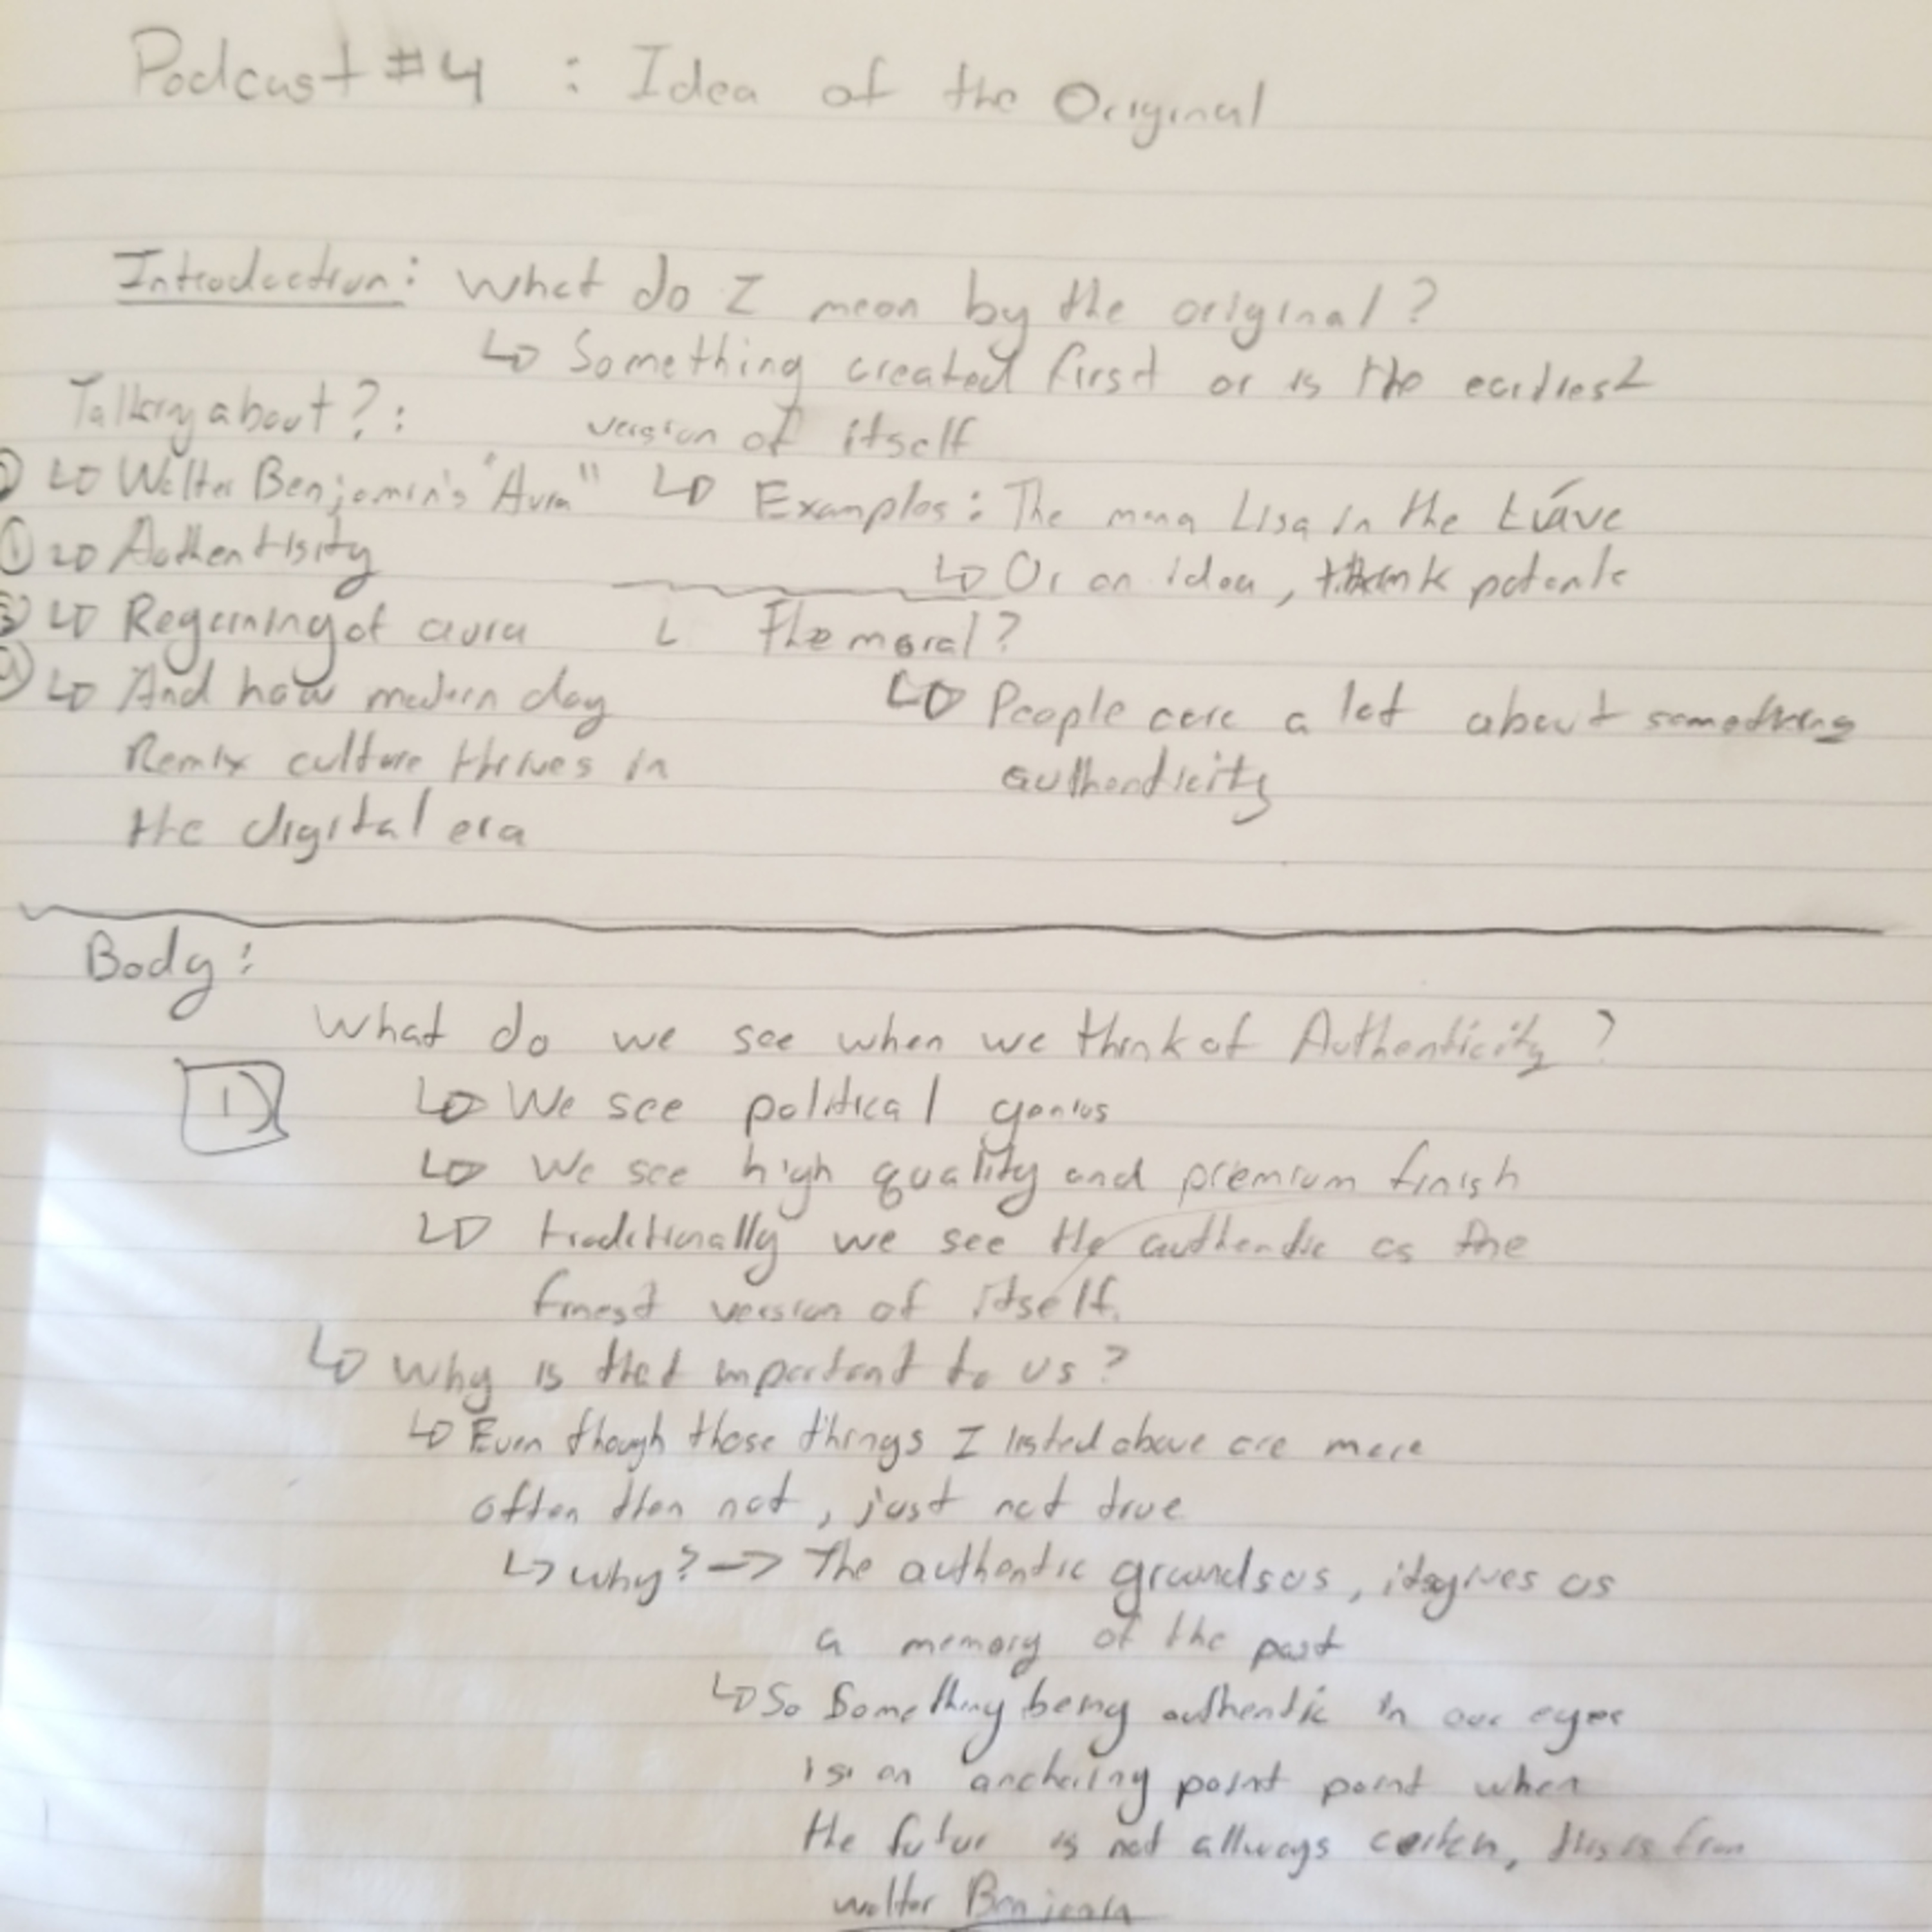 Podcast #4 : Idea of the Original
Introduction: What do I mean by the original?
↳ Something created first or is the earliest
version of itself
↳ Examples: The mona Lisa in the
↳ Or an idea, think patents
The moral?
↳ People care a lot about something
authenticity
Talking about?:
↳ Walter Benjamin's "Aura"
① ↳ Authentisity
③ ↳ Regaining of aura
↳ And how modern day
Remix culture thrives in
the digital era
Body:
What do we see when we think of Authenticity?
1)
↳ We see political genius
↳ We see high quality and premium finish
↳ traditionally we see the authentic as the
finest version of itself.
↳ Why is that important to us?
↳ Even though those things I listed above are more
often then not, just not true
↳ why? -> The authentic grounds us, it gives us
a memory of the past
↳ So Something being authentic in our eyes
is an anchoring point point when
the futur is not allways certen, this is from
walter Benjamin